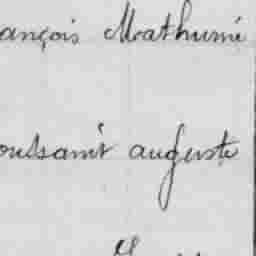 ançois Mathurin
oussaint auguste